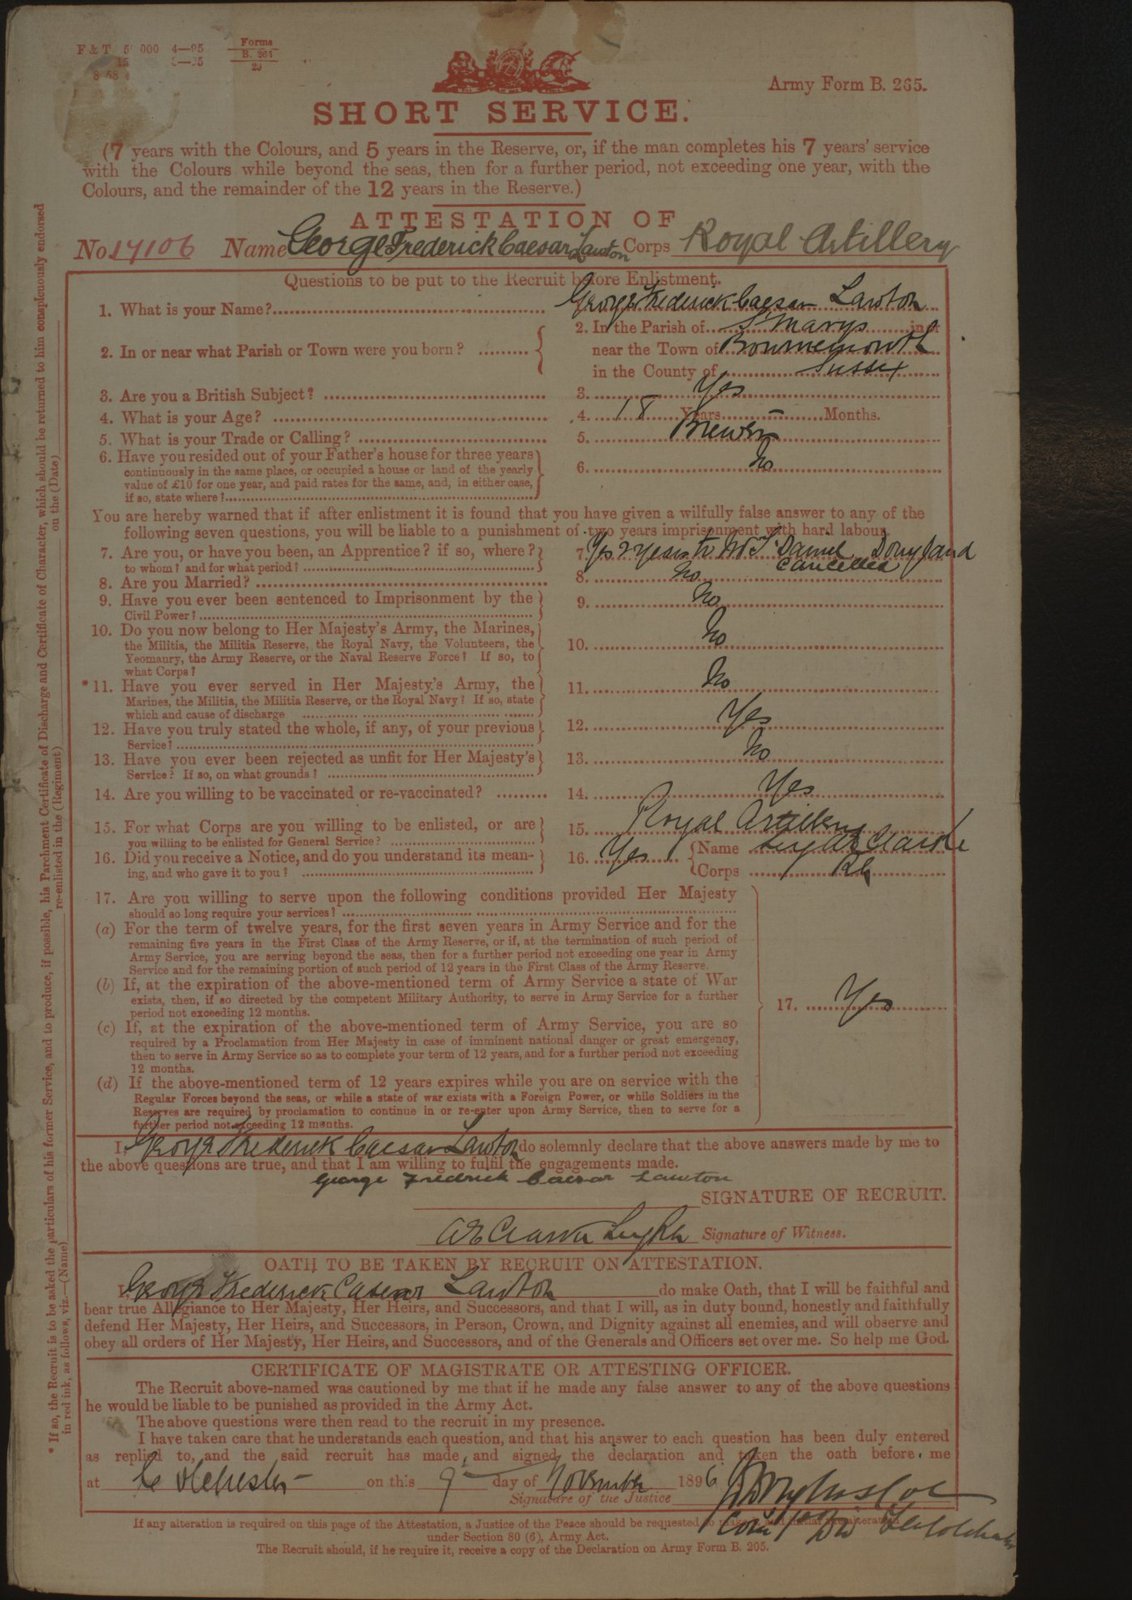 F & T 5 000 4—95
Forms
B. 264
Army Form B. 265.
SHORT SERVICE.
(7 years with the Colours, and 5 years in the Reserve, or, if the man completes his 7 years' service
with the Colours while beyond the seas, then for a further period, not exceeding one year, with the
Colours, and the remainder of the 12 years in the Reserve.)
ATTESTATION OF
No 17106 Name George Frederick Caesar Lawton Corps Royal Artillery
Questions to be put to the Recruit before Enlistment.
1. What is your Name? George Frederick Caesar Lawton
2. In or near what Parish or Town were you born?
2. In the Parish of St Marys in or
near the Town of Bournemouth
in the County of Sussex
3. Are you a British Subject? 3. Yes
4. What is your Age? 4. 18 Years – Months.
5. What is your Trade or Calling? 5. Brewer
6. Have you resided out of your Father's house for three years
continuously in the same place, or occupied a house or land of the yearly
value of £10 for one year, and paid rates for the same, and, in either case,
if so, state where? 6. No
You are hereby warned that if after enlistment it is found that you have given a wilfully false answer to any of the
following seven questions, you will be liable to a punishment of two years imprisonment with hard labour.
7. Are you, or have you been, an Apprentice? if so, where? 7. Yes 2 years to Mr T. Daniel Donyland
to whom? and for what period? cancelled
8. Are you Married? 8. No
9. Have you ever been sentenced to Imprisonment by the
Civil Power? 9. No
10. Do you now belong to Her Majesty's Army, the Marines,
the Militia, the Militia Reserve, the Royal Navy, the Volunteers, the
Yeomanry, the Army Reserve, or the Naval Reserve Force? If so, to
what Corps? 10. No
* 11. Have you ever served in Her Majesty's Army, the
Marines, the Militia, the Militia Reserve, or the Royal Navy? If so, state
which and cause of discharge 11. No
12. Have you truly stated the whole, if any, of your previous
Service? 12. Yes
13. Have you ever been rejected as unfit for Her Majesty's
Service? If so, on what grounds? 13. No
14. Are you willing to be vaccinated or re-vaccinated? 14. Yes
15. For what Corps are you willing to be enlisted, or are
you willing to be enlisted for General Service? 15. Royal Artillery
16. Did you receive a Notice, and do you understand its mean-
ing, and who gave it to you? 16. Yes
Name
Corps RA
17. Are you willing to serve upon the following conditions provided Her Majesty
should so long require your services?
(a) For the term of twelve years, for the first seven years in Army Service and for the
remaining five years in the First Class of the Army Reserve, or if, at the termination of such period of
Army Service, you are serving beyond the seas, then for a further period not exceeding one year in Army
Service and for the remaining portion of such period of 12 years in the First Class of the Army Reserve.
(b) If, at the expiration of the above-mentioned term of Army Service a state of War
exists, then, if so directed by the competent Military Authority, to serve in Army Service for a further
period not exceeding 12 months.
17. Yes
(c) If, at the expiration of the above-mentioned term of Army Service, you are so
required by a Proclamation from Her Majesty in case of imminent national danger or great emergency,
then to serve in Army Service so as to complete your term of 12 years, and for a further period not exceeding
12 months.
(d) If the above-mentioned term of 12 years expires while you are on service with the
Regular Forces beyond the seas, or while a state of war exists with a Foreign Power, or while Soldiers in the
Reserves are required by proclamation to continue in or re-enter upon Army Service, then to serve for a
further period not exceeding 12 months.
I George Frederick Caesar Lawton do solemnly declare that the above answers made by me to
the above questions are true, and that I am willing to fulfil the engagements made.
George Fredrick Caesar Lawton
SIGNATURE OF RECRUIT.
Signature of Witness.
OATH TO BE TAKEN BY RECRUIT ON ATTESTATION.
I George Frederick Caesar Lawton do make Oath, that I will be faithful and
bear true Allegiance to Her Majesty, Her Heirs, and Successors, and that I will, as in duty bound, honestly and faithfully
defend Her Majesty, Her Heirs, and Successors, in Person, Crown, and Dignity against all enemies, and will observe and
obey all orders of Her Majesty, Her Heirs, and Successors, and of the Generals and Officers set over me. So help me God.
CERTIFICATE OF MAGISTRATE OR ATTESTING OFFICER.
The Recruit above-named was cautioned by me that if he made any false answer to any of the above questions
he would be liable to be punished as provided in the Army Act.
The above questions were then read to the recruit in my presence.
I have taken care that he understands each question, and that his answer to each question has been duly entered
as replied to, and the said recruit has made and signed the declaration and taken the oath before me
at Colchester on this 9 day of November 1896
Signature of the Justice
If any alteration is required on this page of the Attestation, a Justice of the Peace should be requested to make it, and initial the alteration
under Section 80 (6), Army Act.
The Recruit should, if he require it, receive a copy of the Declaration on Army Form B. 265.
* If so, the Recruit is to be asked the particulars of his former Service, and to produce, if possible, his Parchment Certificate of Discharge and Certificate of Character, which should be returned to him conspicuously endorsed
in red ink, as follows, viz.—(Name) re-enlisted in the (Regiment) on the (Date)